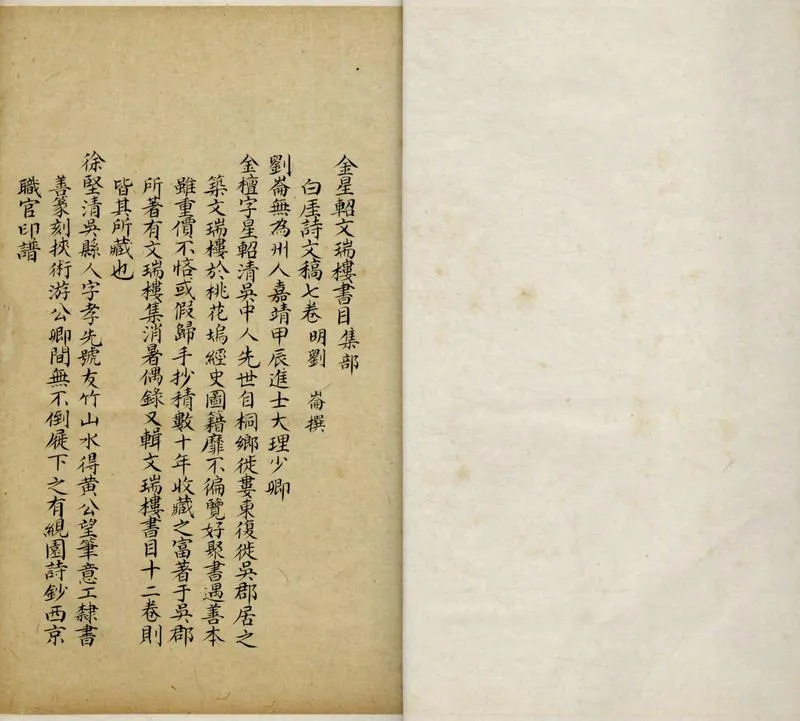 金星軺文瑞樓書目集部
白厓詩文稿七卷 明劉 崙撰
劉崙無為州人嘉靖甲辰進士大理少卿
金檀字星軺清吳中人先世自桐鄉徙婁東復徙吳郡居之
築文瑞樓於桃花塢經史圖籍靡不徧覽好聚書遇善本
雖重價不悋或假歸手抄積數十年收藏之富著于吳郡
所著有文瑞樓集消暑偶錄又輯文瑞樓書目十二卷則
皆其所藏也
徐堅清吳縣人字孝先號友竹山水得黃公望筆意工隸書
善篆刻挾術游公卿間無不倒屣下之有絸園詩鈔西京
職官印譜